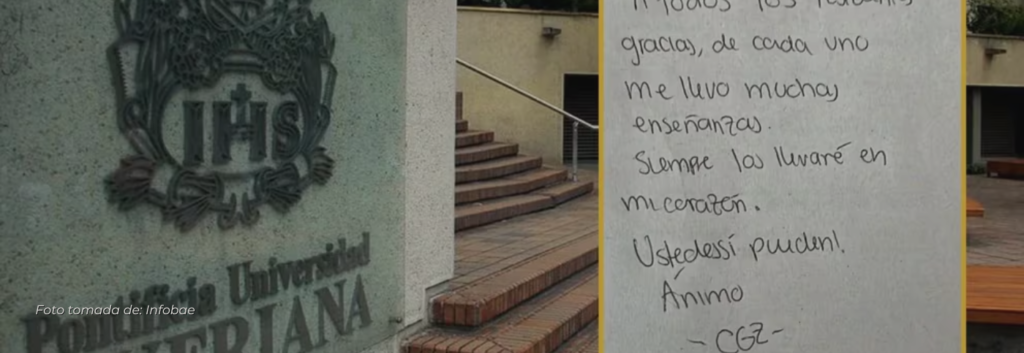 IHS
Pontificia Universidad
Foto tomada de: Infobae
gracias, de cada uno
me llevo muchas
enseñanzas.
Siempre los llevaré en
mi corazón.
Ustedes sí pueden!
Ánimo
- CGZ -